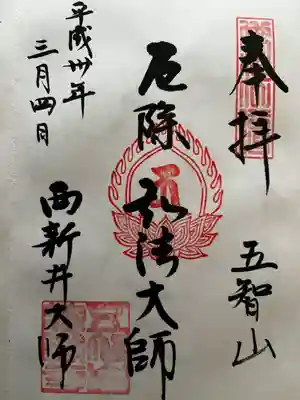 奉拝
五智山
厄除 弘法大師
平成卅年
三月四日
西新井大師